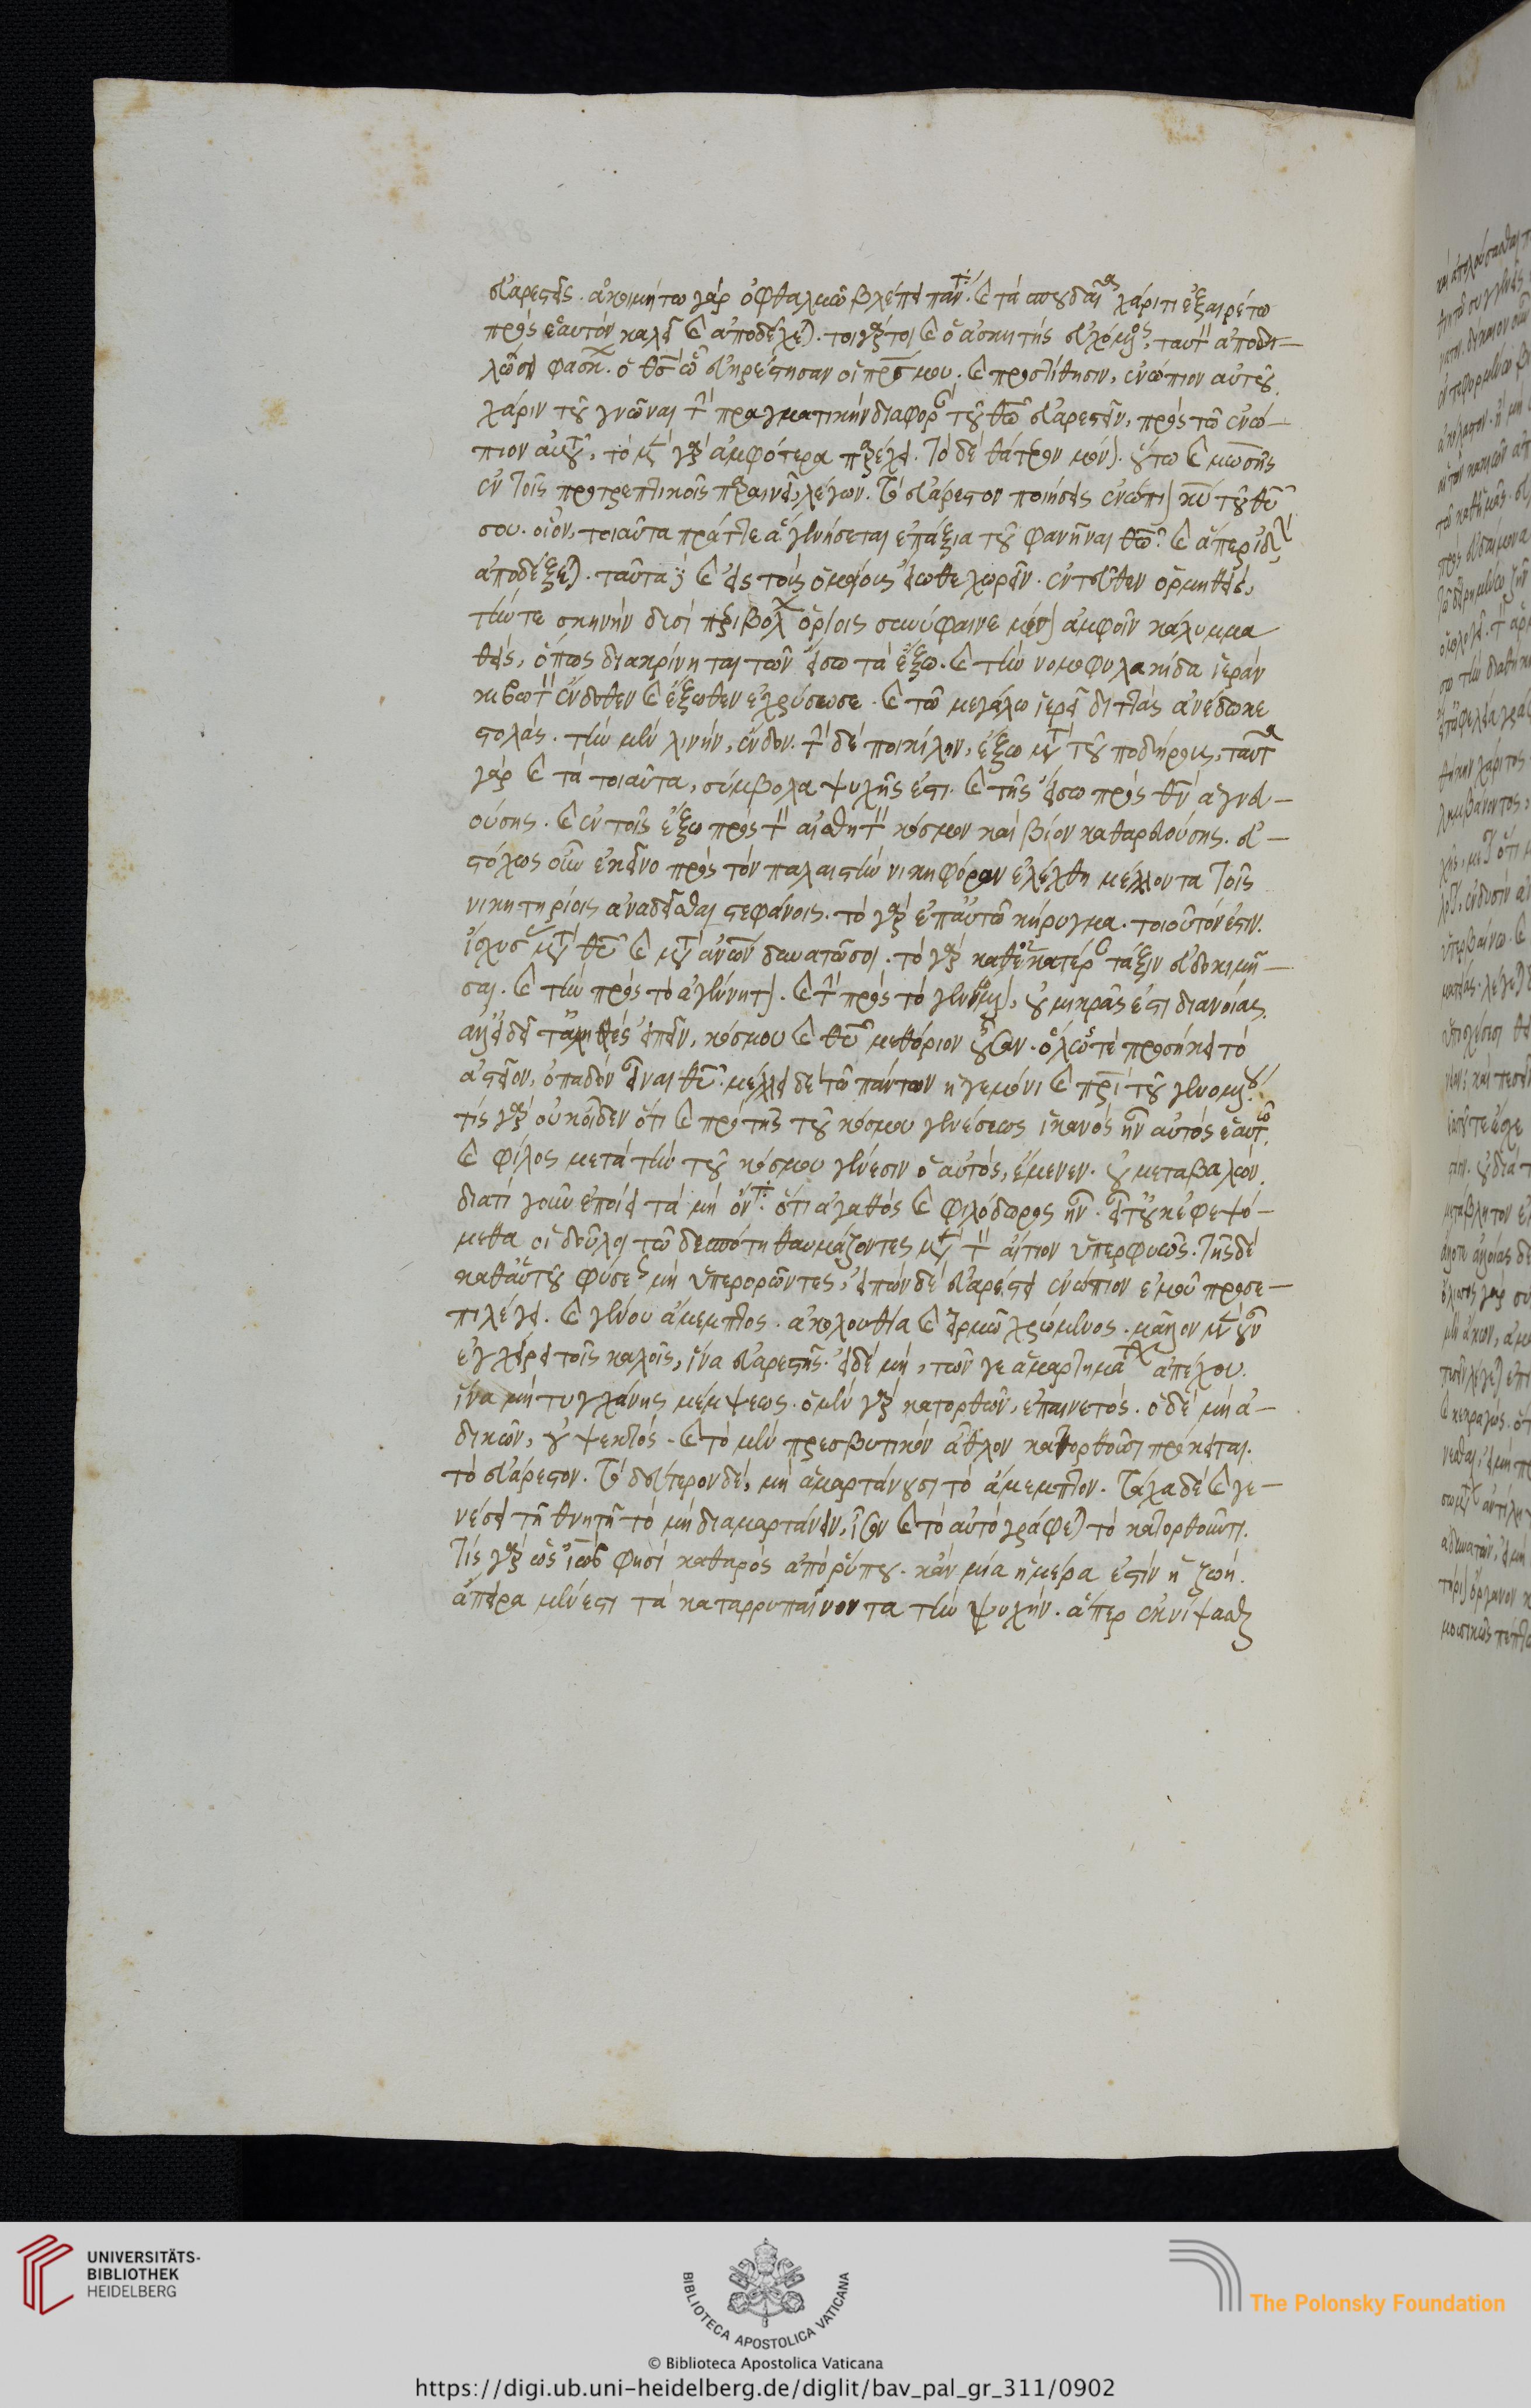 εὐαρεστεῖς. ἀκοιμήτω γὰρ ὀφθαλμῶ βλέπει πάντ(α). καὶ τὰ σπουδαῖα χάριτι ἐξαιρέτω
πρὸς ἑαυτὸν καλεῖ καὶ ἀποδέχεται. τοιγάρτοι καὶ ὁ ἀσκητὴς εὐχόμενος, ταυτὸν ἀποδη-
λώσει φάσκων. ὁ θς ὧ εὐηρέστησαν οἱ πρς μου. καὶ προστίθησιν, ἐνώπιον αὐτοῦ.
χάριν τοῦ γνῶναι τὴν πραγματικὴν διαφορὰν τοῦ θῶ εὐαρεστεῖν, πρὸς τῶ ἐνώ-
πιον αὐτοῦ, τὸ μὲν γὰρ ἀμφότερα παρέχει. τὸ δὲ θάτερον μόνον. οὕτω καὶ μωσῆς
ἐν τοῖς προτρεπτικοῖς παραινεῖ, λέγων. τὸ εὐάρεστον ποιήσεις ἐνώπιον κυ τοῦ θυ
σου. οἷον, τοιαῦτα πράττε ἃ γενήσεται ἐπάξια τοῦ φανῆναι θῶ. καὶ ἅπερ ἰδὼν
ἀποδέξεται. ταῦτα δὲ καὶ εἰς τοὺς ὁμοίους εἴωθε χωρεῖν. ἐντεῦθεν ὁρμηθεὶς,
τήν τε σκηνὴν δυσὶ περιβόλων ὁρίοις συνύφαινε μέσον ἀμφοῖν κάλυμμα
θεὶς, ὅπως διακρίνηται τῶν εἴσω τὰ ἔξω. καὶ τὴν νομοφυλακίδα ἱερὰν
κιβωτὸν ἔνδοθεν καὶ ἔξωθεν ἐχρύσωσε. καὶ τῶ μεγάλω ἱερεῖ διττὰς ἀνέδωκε
στολάς. τὴν μὲν λινὴν, ἔνδον. τὴν δὲ ποικίλην, ἔξω μετὰ τοῦ ποδήρους, ταῦτα
γὰρ καὶ τὰ τοιαῦτα, σύμβολα ψυχῆς ἐστι. καὶ τῆς εἴσω πρὸς θν ἁγνευ-
ούσης. καὶ ἐν τοῖς ἔξω πρὸς τὸν αἰσθητὸν κόσμον καὶ βίον καθαρευούσης. εὐ-
στόχως οὖν ἐκεῖνο πρὸς τὸν παλαιστὴν νικηφόρον ἐλέχθη μέλλοντα τοῖς
νικητηρίοις ἀναδεῖσθαι στεφάνοις. τὸ γὰρ ἐπ' αὐτῶ κήρυγμα. τοιοῦτόν ἐστιν.
ἴσχυσας μετὰ θυ καὶ μετὰ ανων δυνατῶσοι. τὸ γὰρ καθ' ἑκατέραν τάξιν εὐδοκιμῆ-
σαι. καὶ τὴν πρὸς τὸ ἀγένητον. καὶ τὴν πρὸς τὸ γενόμενον, οὐ μικρᾶς ἐστι διανοίας.
ἀλλ' εἰ δεῖ τἀληθὲς εἰπεῖν, κόσμου καὶ θυ μεθόριον οὖσαν. ὅλως τε προσήκει τὸ
ἀστεῖον, ὀπαδὸν εἶναι θυ. μέλλει δὲ τῶ πάντων ἡγεμόνι καὶ πρὶ τοῦ γενομένου.
τίς γὰρ οὐκ οἶδεν ὅτι καὶ πρὸ τῆς τοῦ κόσμου γενέσεως ἱκανὸς ἦν αὐτὸς ἑαυτῶ.
καὶ φίλος μετὰ τὴν τοῦ κόσμου γένεσιν ὁ αὐτὸς, ἔμενεν. οὐ μεταβαλών.
διατί γοῦν ἐποίει τὰ μὴ ὄντα. ὅτι ἀγαθὸς καὶ φιλόδωρος ἦν. εἶτ' οὐκ ἐφεψό-
μεθα οἱ δοῦλοι τῶ δεσπότη θαυμάζοντες μὲν τὸν αἴτιον ὑπερφυῶς. τῆς δὲ
καθ' αὑτοὺς φύσεως μὴ ὑπερορῶντες, εἰπὼν δὲ εὐαρέστει ἐνώπιον ἐμοῦ προσε-
πιλέγει. καὶ γίνου ἄμεμπτος. ἀκολουθία καὶ εἱρμῶ χρώμενος. μᾶλλον μὲν οὖν
ἐγχείρει τοῖς καλοῖς, ἵνα εὐαρεστῆς. εἰ δὲ μὴ, τῶν γε ἁμαρτημάτων ἀπέχου.
ἵνα μὴ τυγχάνης μέμψεως. ὁ μὲν γὰρ κατορθῶν, ἐπαινετός. ὁ δὲ μὴ ἀ-
δικῶν, οὐ ψεκτός. καὶ τὸ μὲν πρεσβυτικὸν ἆθλον κατορθοῦσι πρόκειται.
τὸ εὐάρεστον. τὸ δεύτερον δὲ, μὴ ἁμαρτάνουσι τὸ ἄμεμπτον. τάχα δὲ καὶ γε-
νέσει τῆ θνητῆ τὸ μὴ διαμαρτάνειν, ἴσον καὶ τὸ αὐτὸ γράφεται τὸ κατορθοῦντι.
τίς γὰρ ὡς ἰὼβ φησὶ καθαρὸς ἀπὸ ῥύπου. κἂν μία ἡμέρα ἐστὶν ἡ ζωή.
ἄπειρα μέν ἐστι τὰ καταρρυπαίνοντα τὴν ψυχήν. ἅπερ ἐκνίψασθαι
UNIVERSITÄTS-
BIBLIOTHEK
HEIDELBERG
BIBLIOTECA APOSTOLICA VATICANA
The Polonsky Foundation
© Biblioteca Apostolica Vaticana
https://digi.ub.uni-heidelberg.de/diglit/bav_pal_gr_311/0902